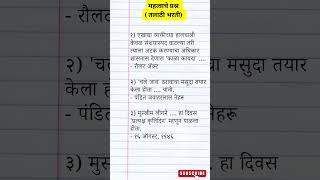 महत्वाचे प्रश्न
( तलाठी भरती)
- रौलट
२) '
केला
- पंडित
३) मु
१) एखाद्या व्यक्तीच्या हालचाली
केवळ संशयास्पद वाटल्या तरी
त्याला अटक करण्याचा अधिकार
शासनास देणारा 'काळा कायदा' ....
- रौलट ॲक्ट
२) 'चले जाव' ठरावाचा मसुदा तयार
केला होता .... यांनी.
- पंडित जवाहरलाल नेहरू
३) मुस्लीम लीगने .... हा दिवस
'प्रत्यक्ष कृतिदिन' म्हणून पाळला
होता.
- १६ ऑगस्ट, १९४६
मसुदा तयार
नेहरू
हा दिवस
SUBSCRIBE